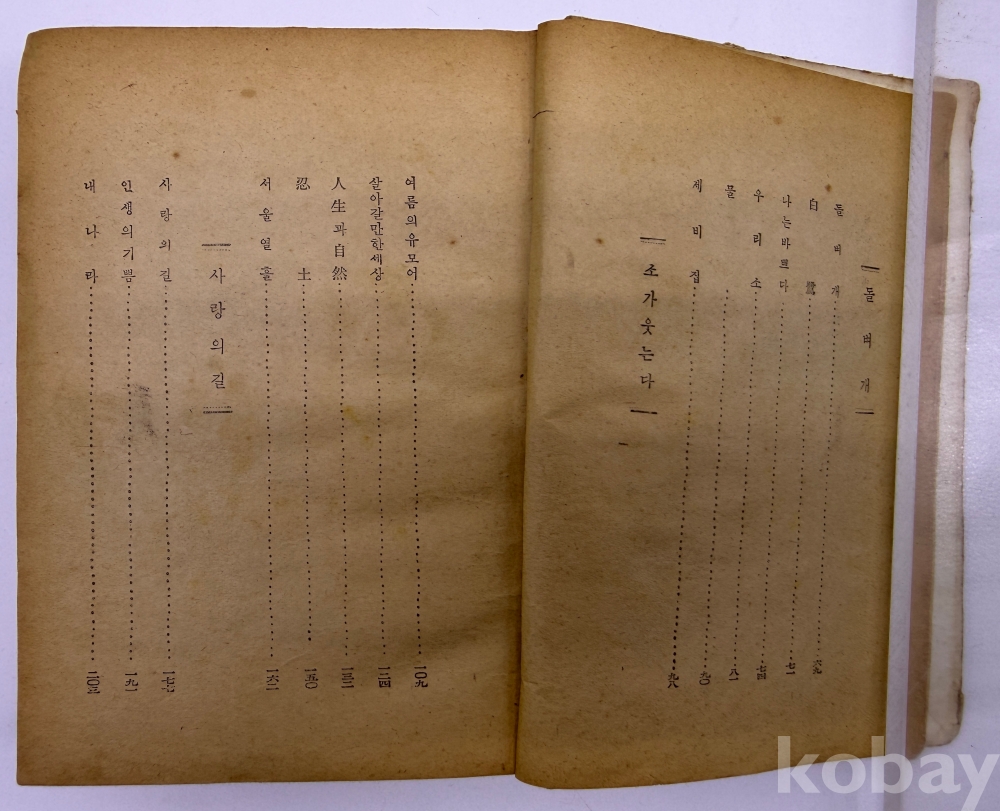 돌벼개
돌벼개……六九
白鷺……七一
나는바쁘다……七四
우리소……八一
물……九〇
제비집……九八
소가웃는다
여름의유모어……一〇九
살아갈만한세상……一二四
人生과自然……一三二
忍土……一五〇
서울열흘……一六二
사랑의길
사랑의길……一七七
인생의기쁨……一九一
내나라……二〇三
kobay